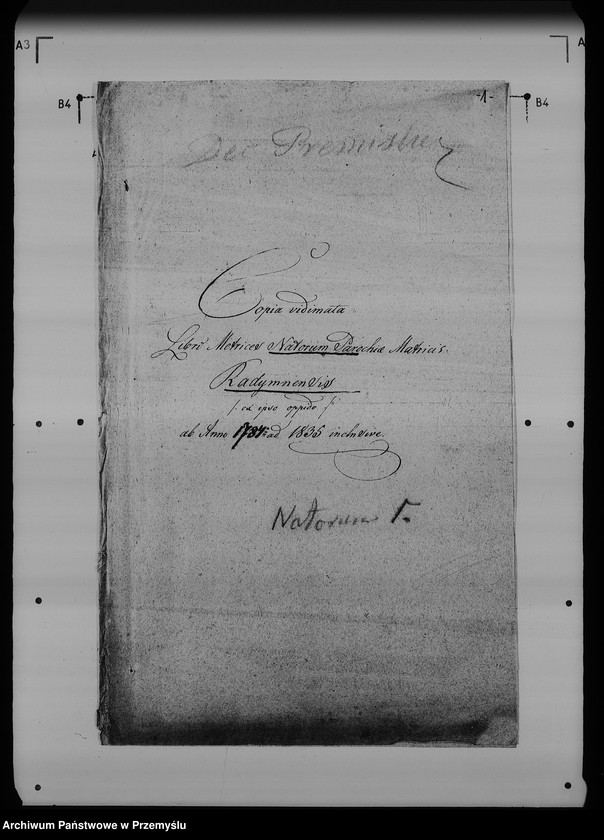 A3
A
B4
-1-
B4
Dec Premislien
Copia vidimata
Libri Metrices Natorum Parochiæ Matricis
Radymnensis
/: ex ipso oppido :/
ab Anno 1784 ad 1835 inclusive.
Natorum I.
Archiwum Państwowe w Przemyślu